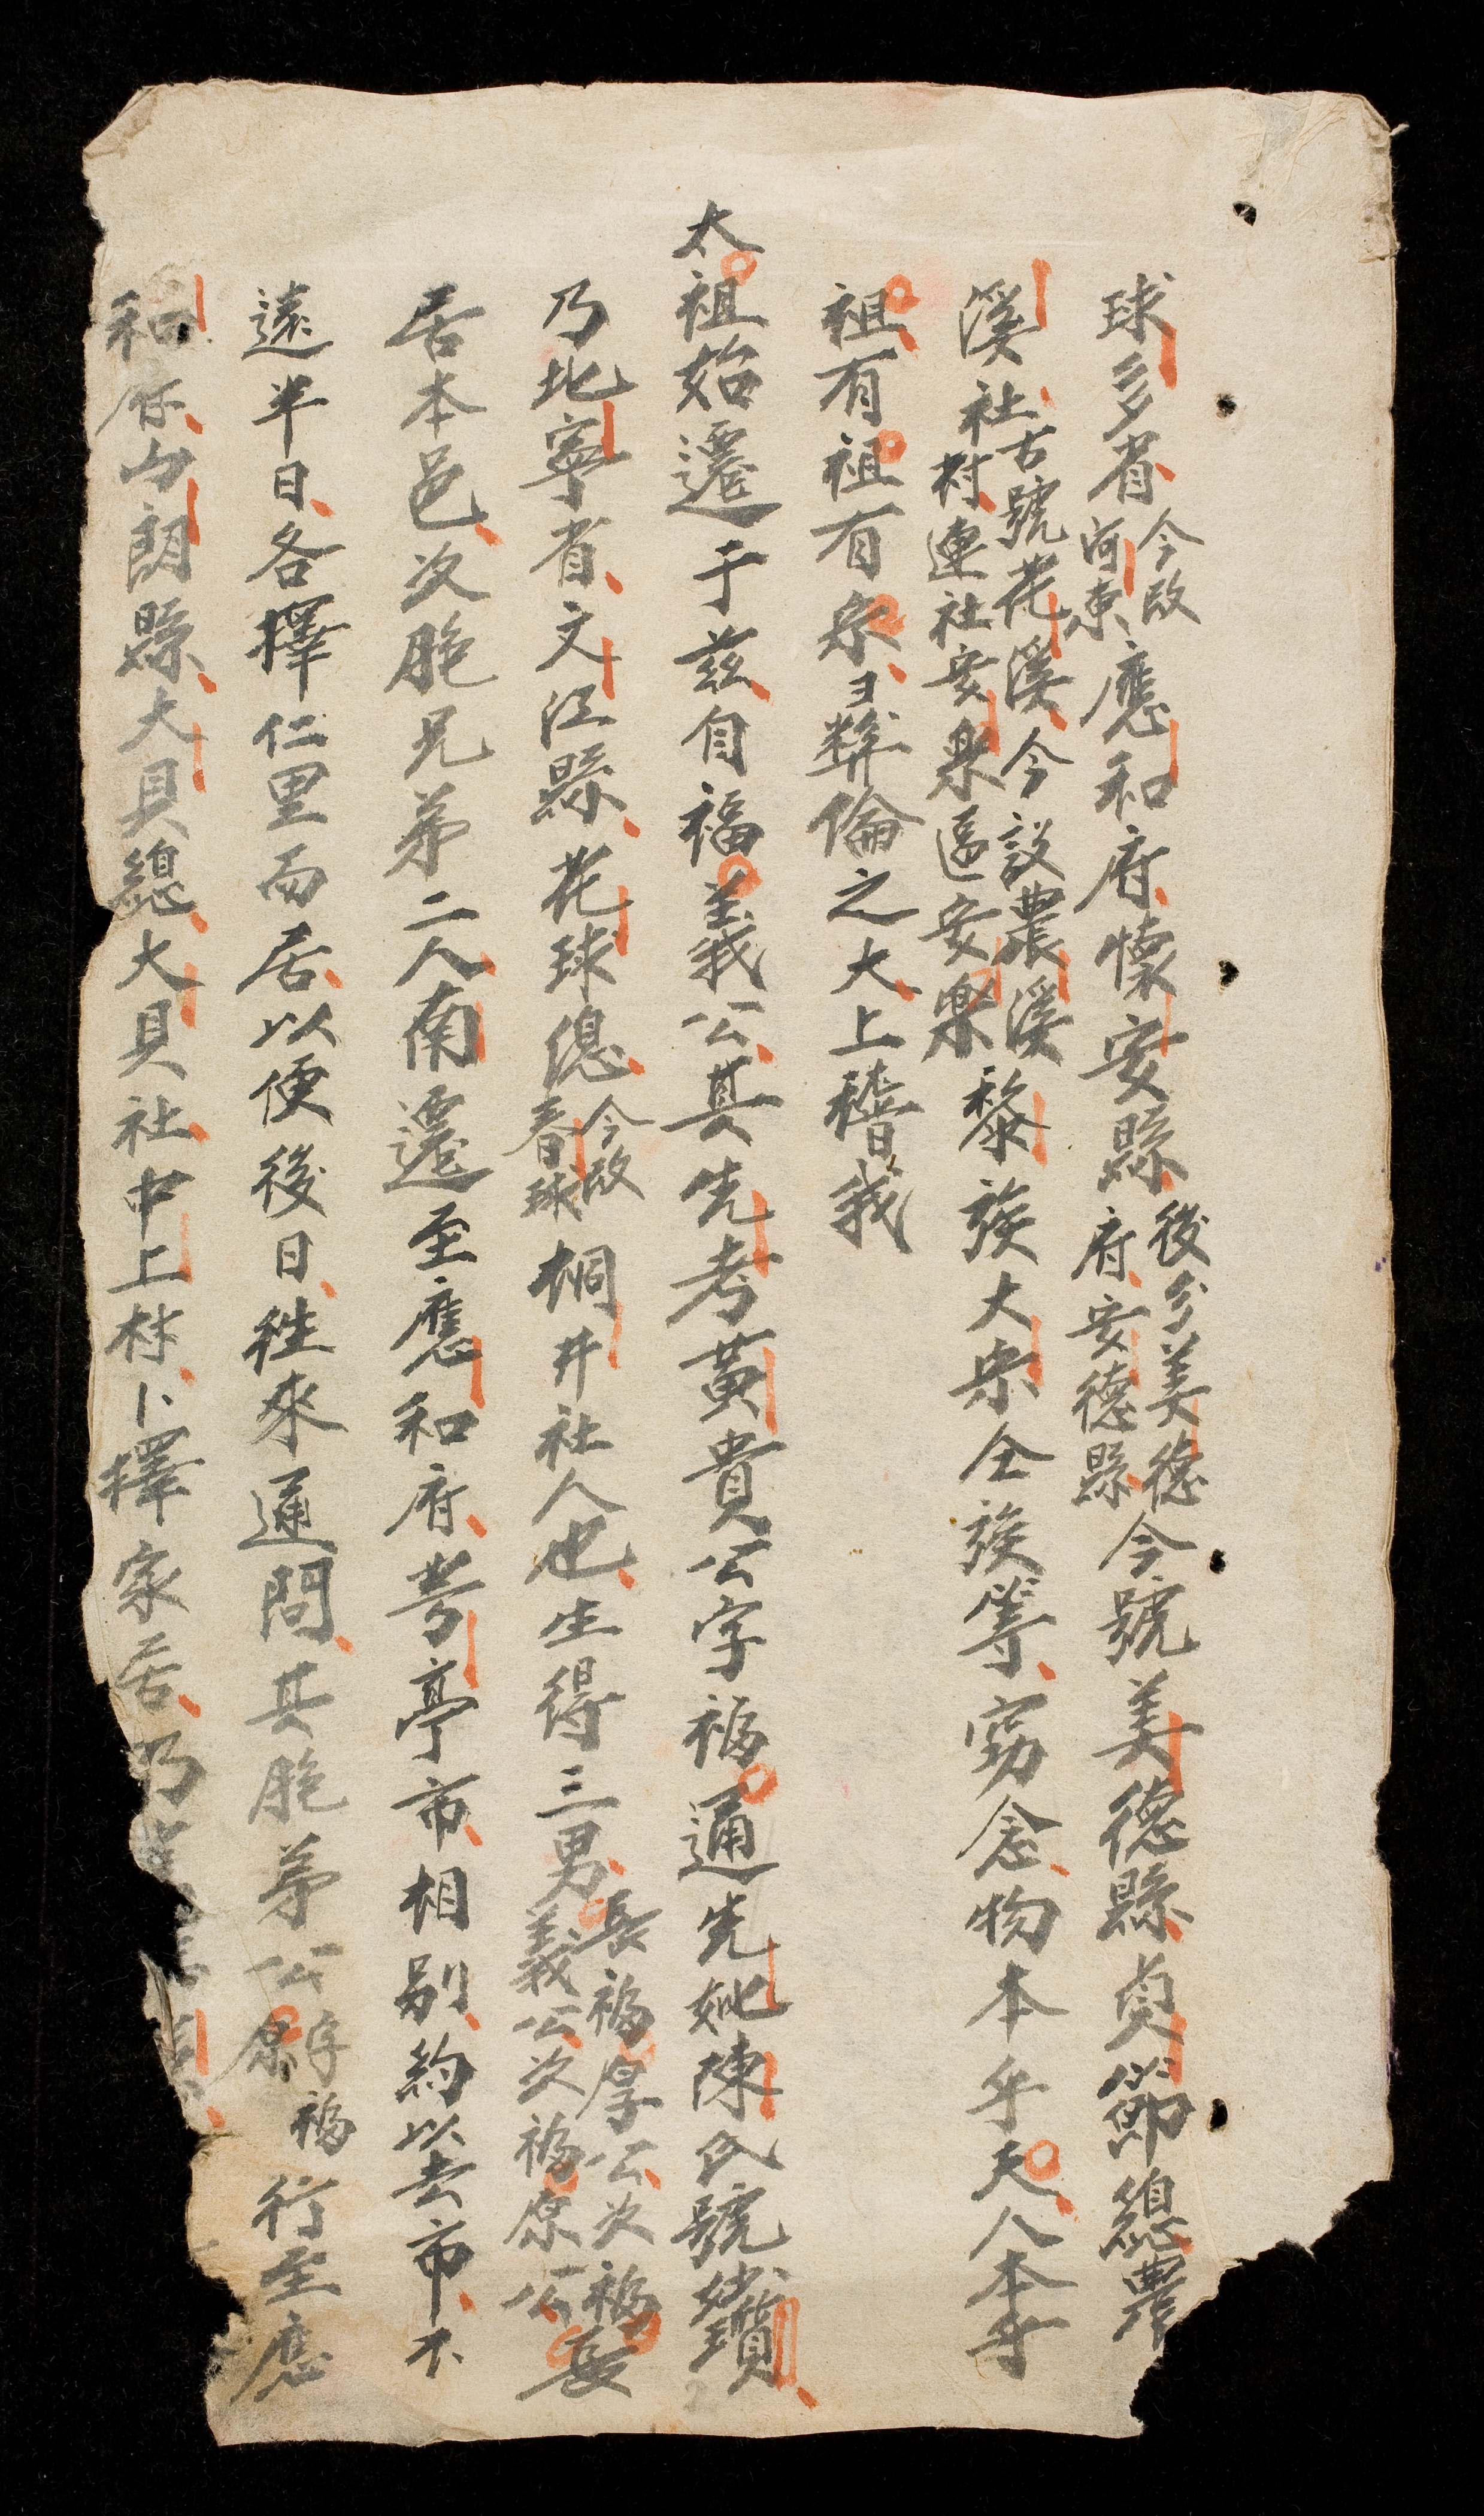 球多省今改河東應和府懷安縣後分美德府安德縣今號美德縣貞節總農
溪社古號花溪今設農溪村連社安樂區安樂黎族大宗仝族等窃念物本乎天人本乎
祖有祖有宗彝倫之大上稽我
太祖始遷于兹自福義公其先考黃貴公字福通先妣陳氏號
乃北寧省文江縣花球總今改春球桐井社人也生得三男長福厚公次福義公次福原公長
居本邑次胞兄弟二人南遷至應和府芳亭市相別約以去市不
遠半日各擇仁里而居以便後日往來通問其胞弟公字福原行至應
和府山朗縣大貝總大貝社中上村卜擇家居乃